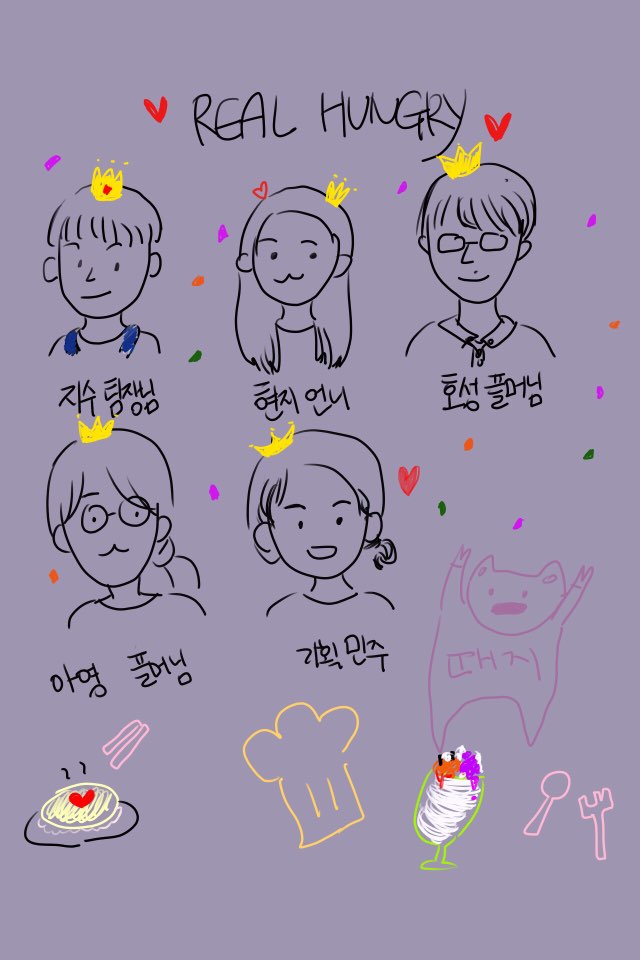 REAL HUNGRY
지수 팀장님
현지 언니
호성 플머님
아영 플머님
기획 민주
돼지